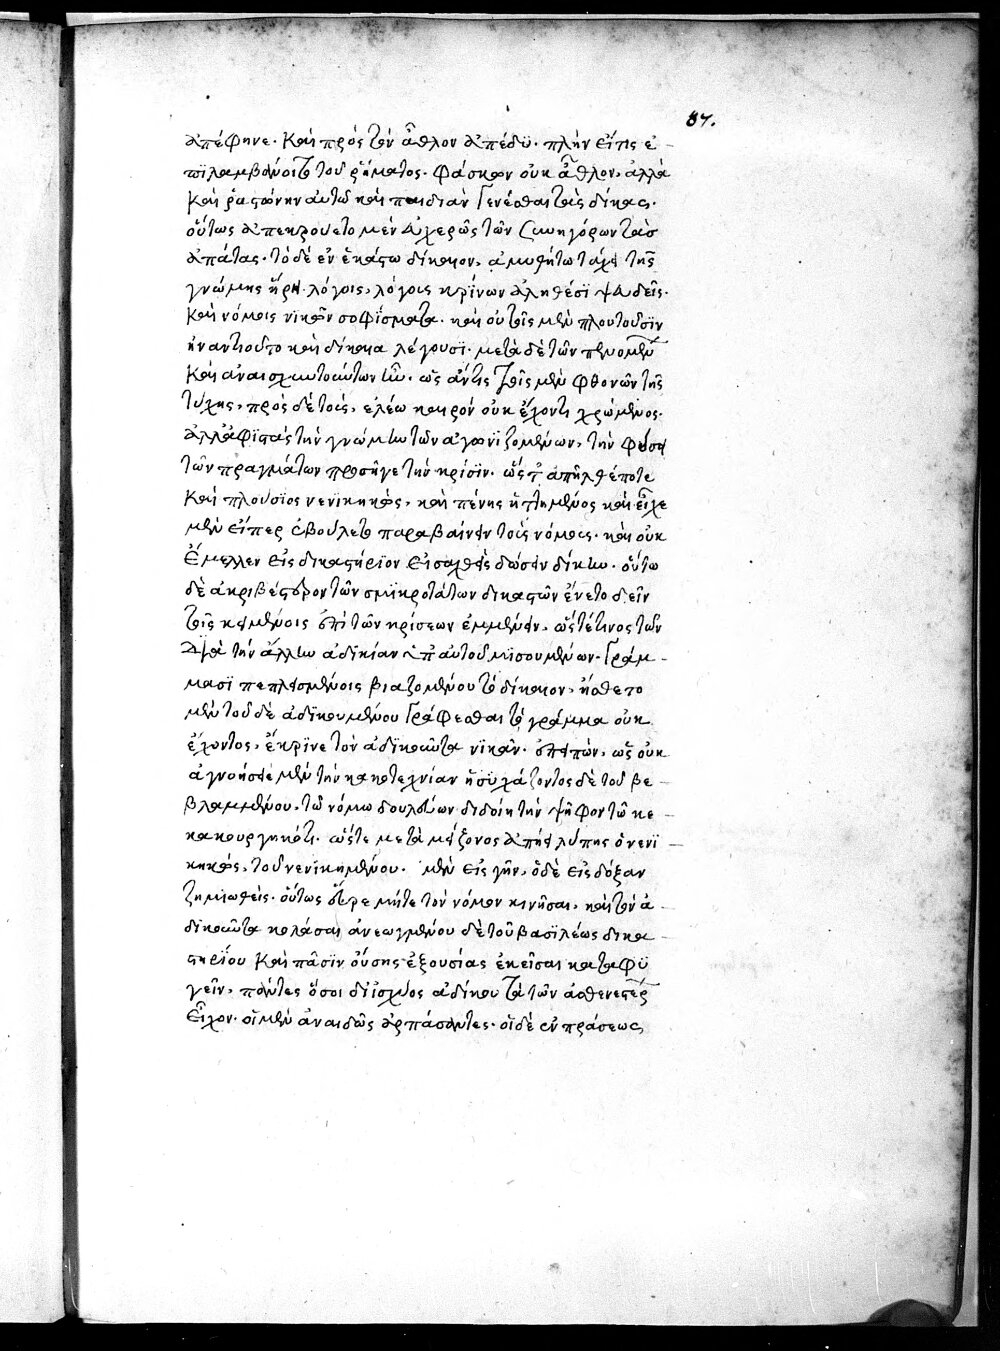 87.
ἀπέφηνε. καὶ πρὸς τὸν ἆθλον ἀπέδυ. πλὴν εἴ τις ἐ-
πιλαμβάνοιτο τοῦ ῥήματος. φάσκων οὐκ ἆθλον, ἀλλὰ
καὶ ῥαστώνην αὐτῶ καὶ παιδιὰν γενέσθαι τὰς δίκας.
οὕτως ἀπεκρούετο μὲν εὐχερῶς τῶν συνηγόρων τὰσ
ἀπάτας. τὸ δὲ ἐν ἑκάστω δίκαιον, ἀμυθήτω τάχει τῆς
γνώμης ἥρει. λόγοις, λόγοις κρίνων ἀληθέσϊ ψευδεῖς.
καὶ νόμοις νϊκῶν σοφίσματα. καὶ οὐ τοῖς μὲν πλουτοῦσϊν
ἠναντιοῦτο καὶ δίκαια λέγουσϊ. μετὰ δὲ τῶν πενομένων
καὶ ἀναισχυντούντων ἦν. ὡς ἄν τις τοῖς μὲν φθονῶν τῆς
τύχης, πρὸς δὲ τοὺς, ἐλέω καιρὸν οὐκ ἔχοντι χρώμενος.
ἀλλ' ἀφϊστὰς τὴν γνώμην τῶν ἀγωνϊζομένων, τὴν φύσει
τῶν πραγμάτων προσῆγε τὴν κρίσϊν. ὥστ' ἀπῆλθέ ποτε
καὶ πλούσϊος νενϊκηκὼς, καὶ πένης ἡττημένος καὶ εἶχε
μὲν εἴπερ ἐβούλετο παραβαίνειν τοὺς νόμους. καὶ οὐκ
ἔμελλεν εἰς δικαστήρϊον εἰσαχθεὶς δώσειν δίκην. οὕτω
δὲ ἀκριβέστερον τῶν σμϊκροτάτων δικαστῶν ᾤετο δεῖν
τοῖς κειμένοις ἐπὶ τῶν κρίσεων ἐμμένειν, ὥστέ τινος τῶν
διὰ τὴν ἄλλην ἀδικίαν ὑπ' αὐτοῦ μϊσουμένων. γράμ-
μασϊ πεπλασμένοις βιαζομένου τὸ δίκαιον, ἤσθετο
μὲν τοῦ δὲ ἀδικουμένου γράφεσθαι τὸ γράμμα οὐκ
ἔχοντος, ἔκρϊνε τὸν ἀδϊκοῦντα νϊκᾶν. ἐπειπὼν, ὡς οὐκ
ἀγνοήσειε μὲν τὴν κακοτεχνίαν ἡσϋχάζοντος δὲ τοῦ βε-
βλαμμένου, τῶ νόμω δουλεύων διδοίη τὴν ψῆφον τῶ κε-
κακουργηκότι. ὥστε μετὰ μείζονος ἀπήει λύπης ὁ νενϊ-
κηκὼς, τοῦ νενϊκημένου. μὲν εἰς γῆν, ὁ δὲ εἰς δόξαν
ζημιωθεὶς. οὕτως εὗρε μήτε τὸν νόμον κινῆσαι, καὶ τὸν ἀ-
δϊκοῦντα κολάσαι ἀνεωγμένου δὲ τοῦ βασϊλέως δικα-
στηρΐου καὶ πᾶσϊν οὔσης ἐξουσίας ἐκεῖσαι καταφϋ
γεῖν, πάντες ὅσοι δι' ἰσχύος ἀδίκου τὰ τῶν ἀσθενεστέρων
εἶχον. οἱ μὲν ἀναιδῶς ἁρπάσαντες. οἱ δὲ ἐν πράσεως